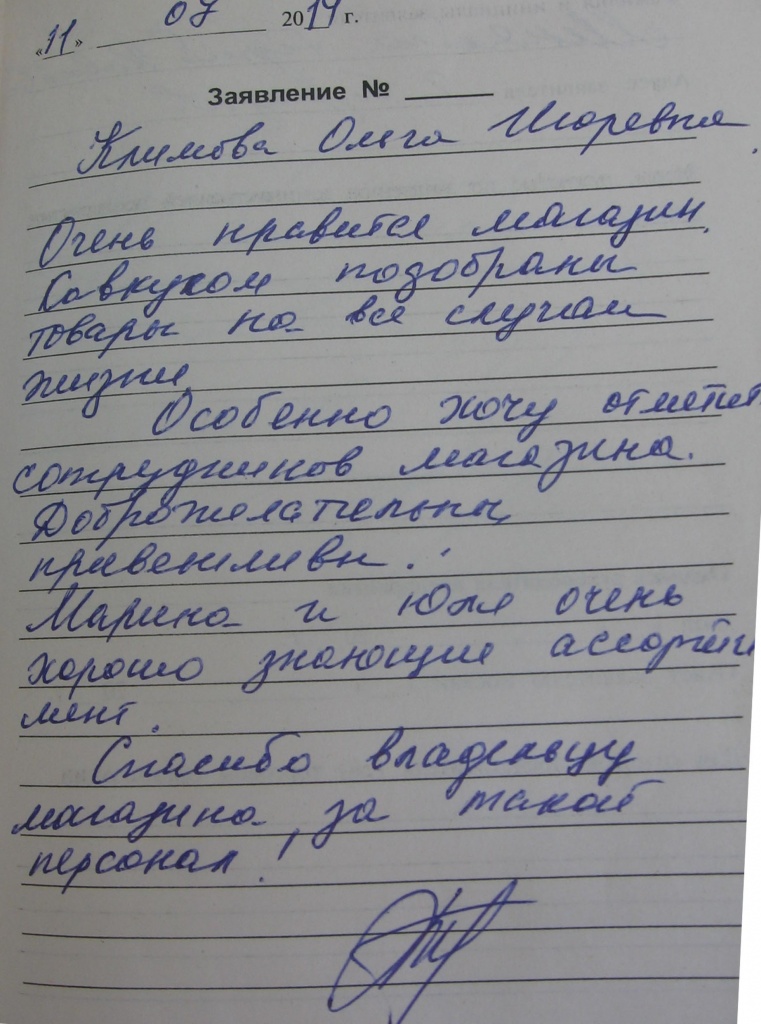 «11» 07 2014 г.
Заявление №
Климова Ольга Игоревна.
Очень нравится магазин.
Со вкусом подобраны
товары на все случаи
жизни.
Особенно хочу отметит
сотрудников магазина.
Доброжелательны,
приветливы!
Марина и Юля очень
хорошо знающие ассорти
мент.
Спасибо владельцу
магазина, за такой
персонал!